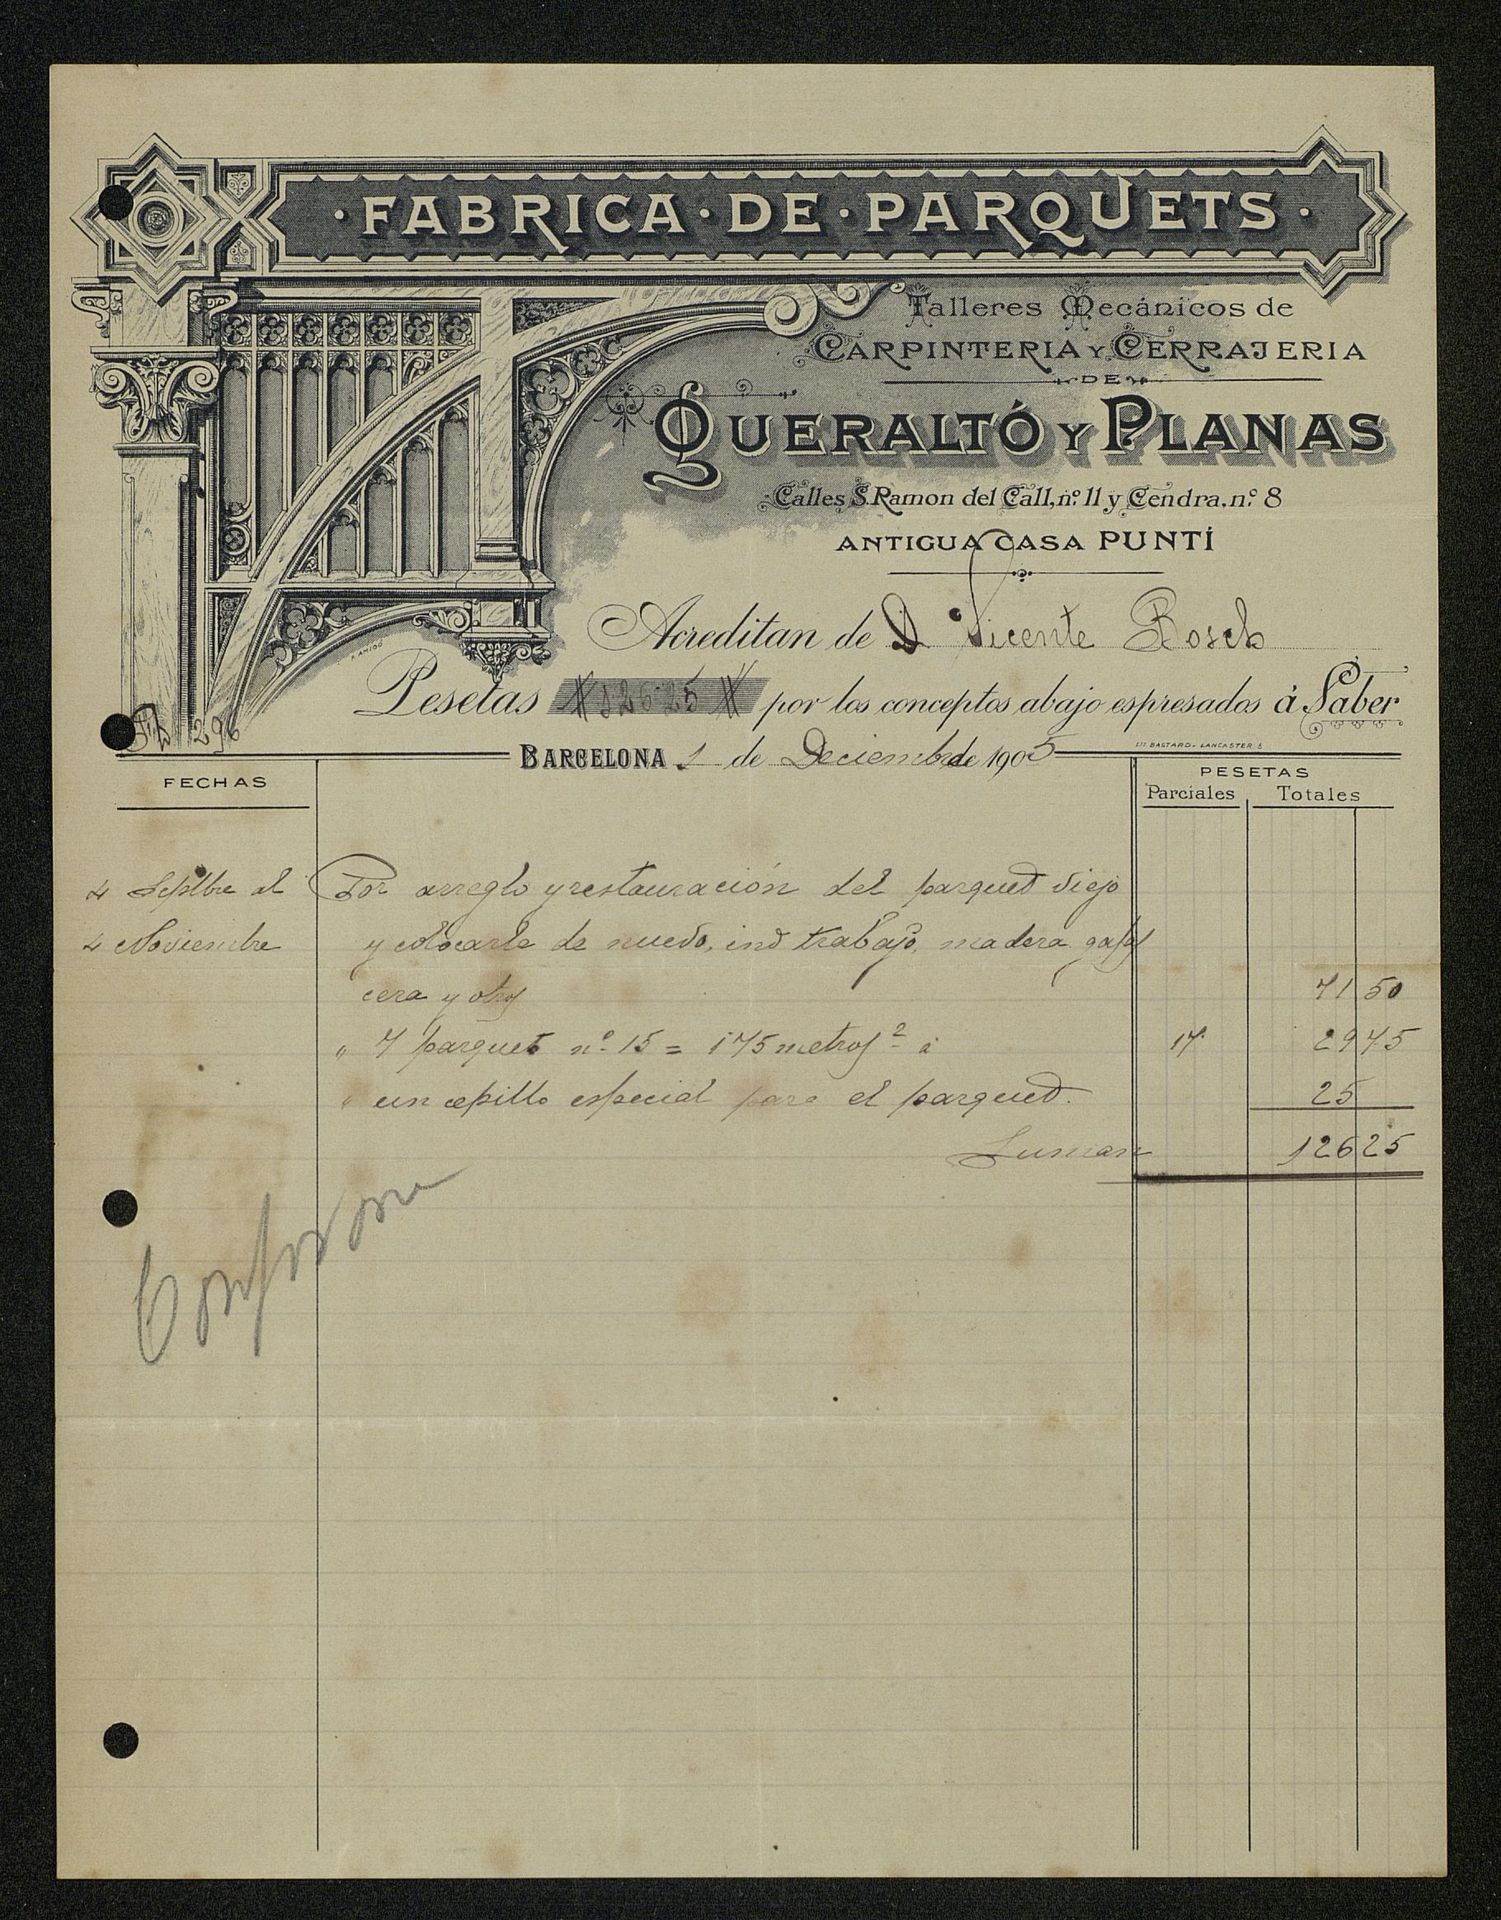 · FABRICA · DE · PARQUETS ·
Talleres Mecánicos de
CARPINTERIA Y CERRAJERIA
DE
QUERALTÓ Y PLANAS
Calles S. Ramon del Call, nº 11 y Cendra, nº 8
ANTIGUA CASA PUNTÍ
Acreditan de D. Vicente Bosch
Pesetas # 126'25 # por los conceptos abajo espresados á Saber
296
LIT. BASTARD - LANCASTER 5
BARCELONA 1 de Deciembre de 1905
FECHAS PESETAS
Parciales Totales
4 Septbre al Por arreglo y restauración del parquet viejo
4 Noviembre y colocarle de nuevo, incd trabajo, madera, gafas
cera y otros 71 50
" 7 parquet nº 15 = 1'75 metros² à 17 29 75
" un cepillo especial para el parqued. 25
Suman 126 25
Conforme